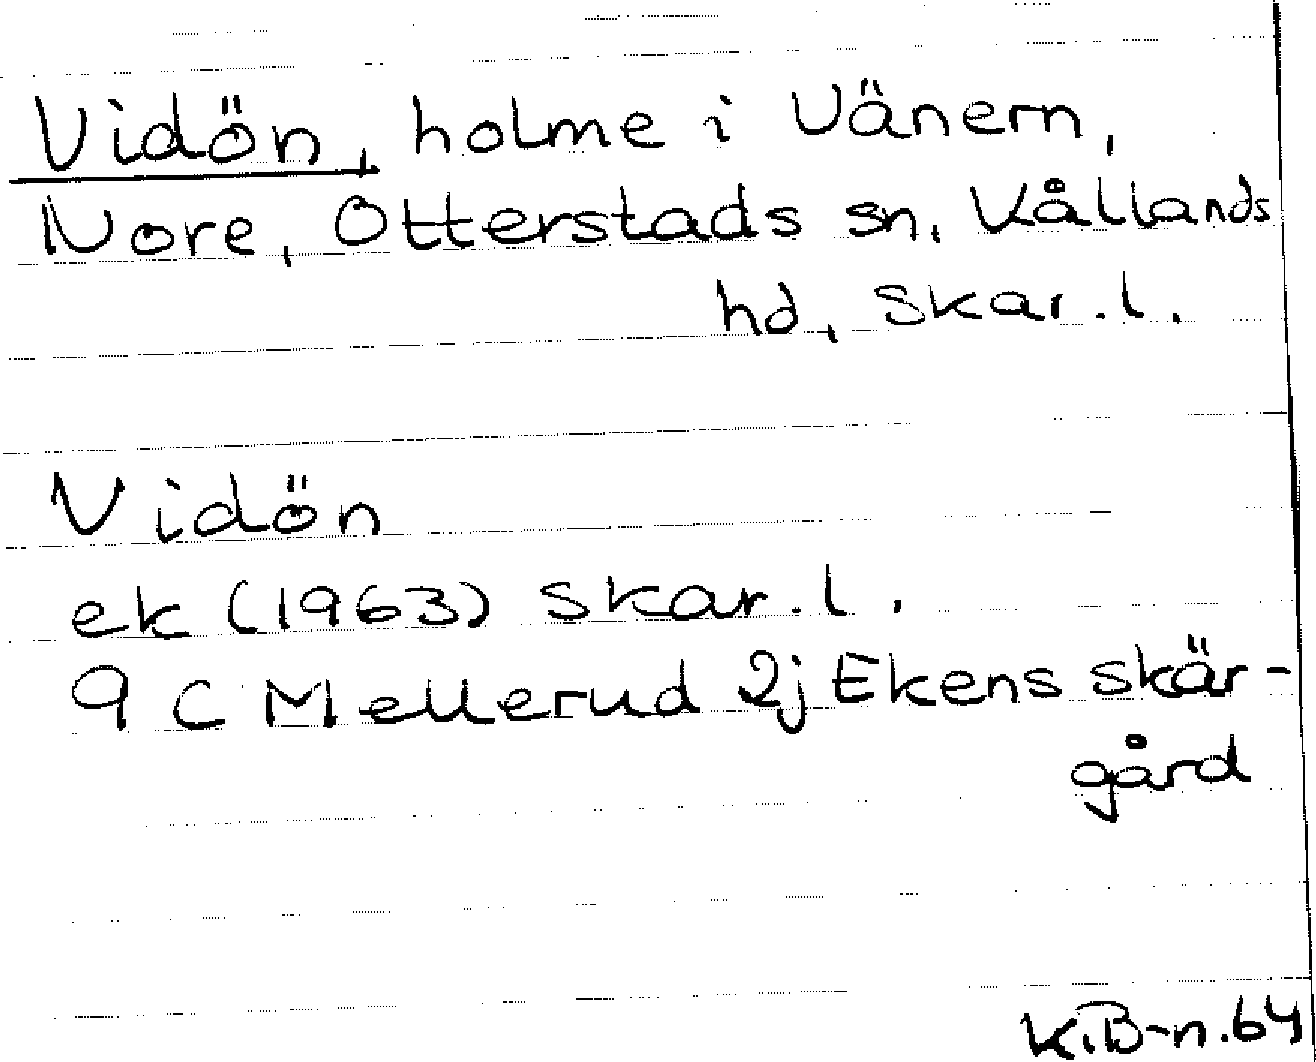 Vidön, holme i Vänern,
Nore, Otterstads sn, Kållands
hd, Skar.l.
Vidön
ek (1963) Skar.l.
9 C Mellerud 2j Ekens skär-
gård
K.B-n.64